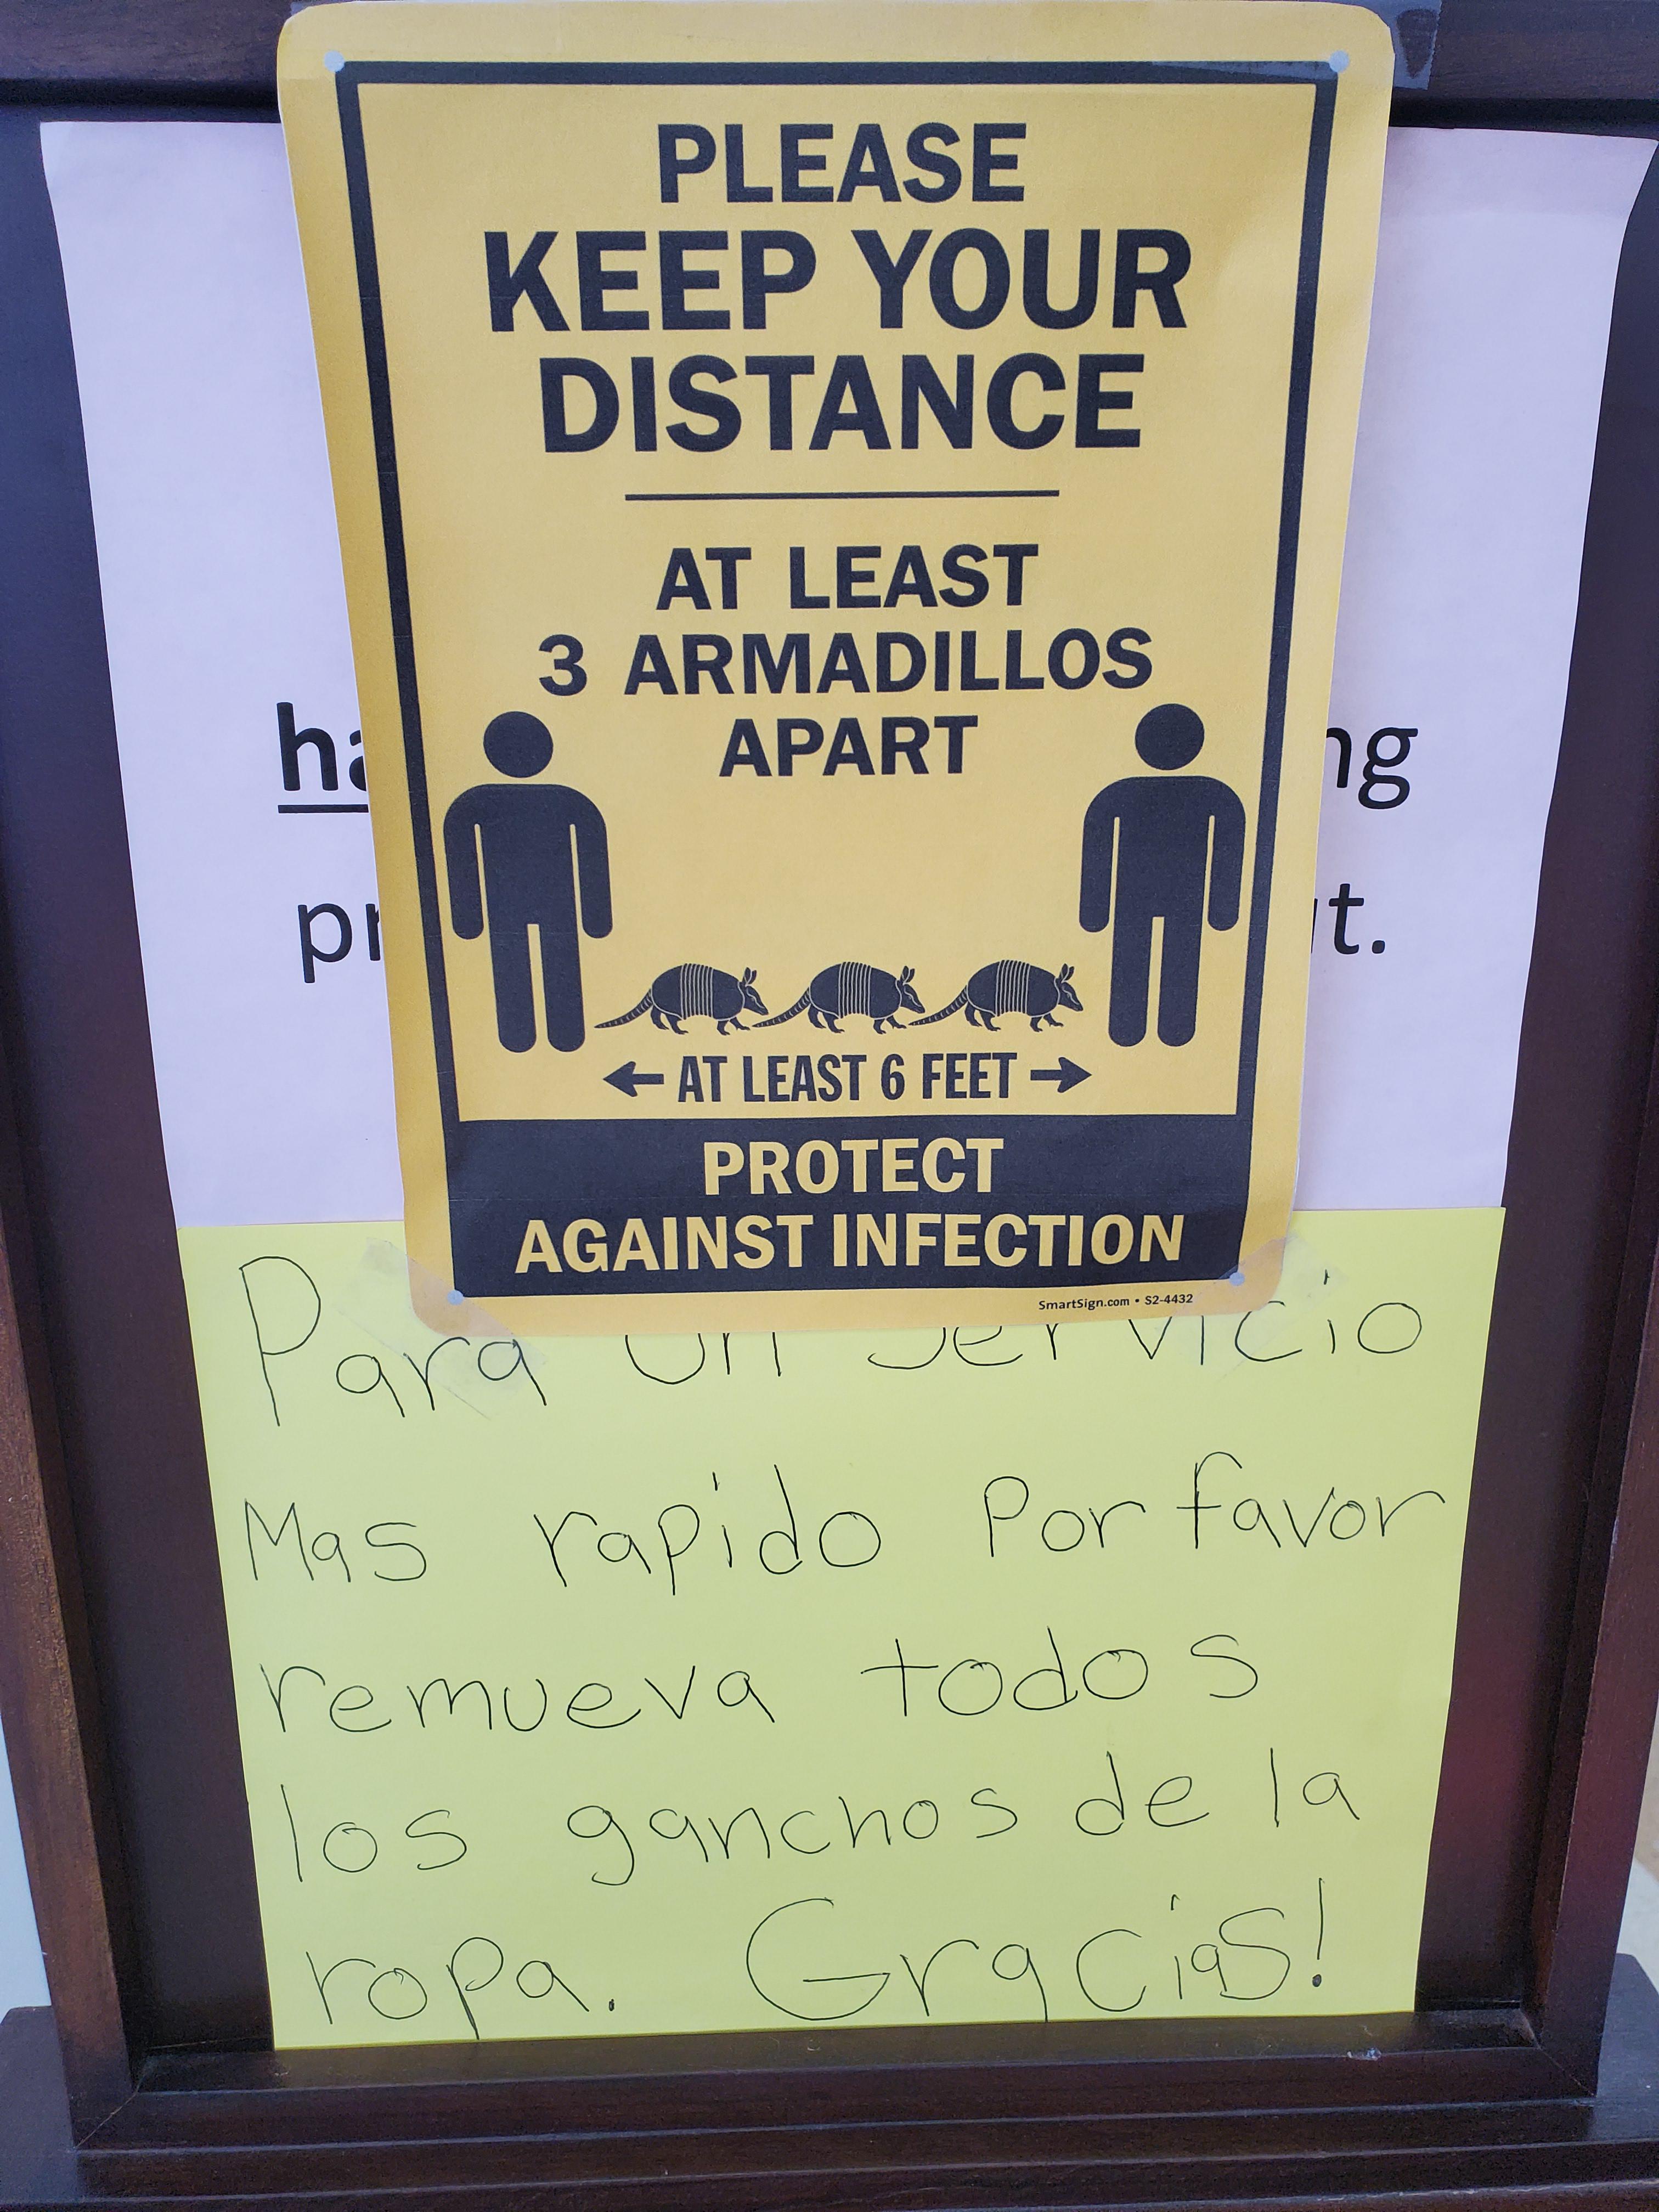 PLEASE
KEEP YOUR
DISTANCE
AT LEAST
3 ARMADILLOS
APART
← AT LEAST 6 FEET →
PROTECT
AGAINST INFECTION
SmartSign.com • S2-4432
Para un servicio
Mas rapido Por favor
remueva todos
los ganchos de la
ropa. Gracias!